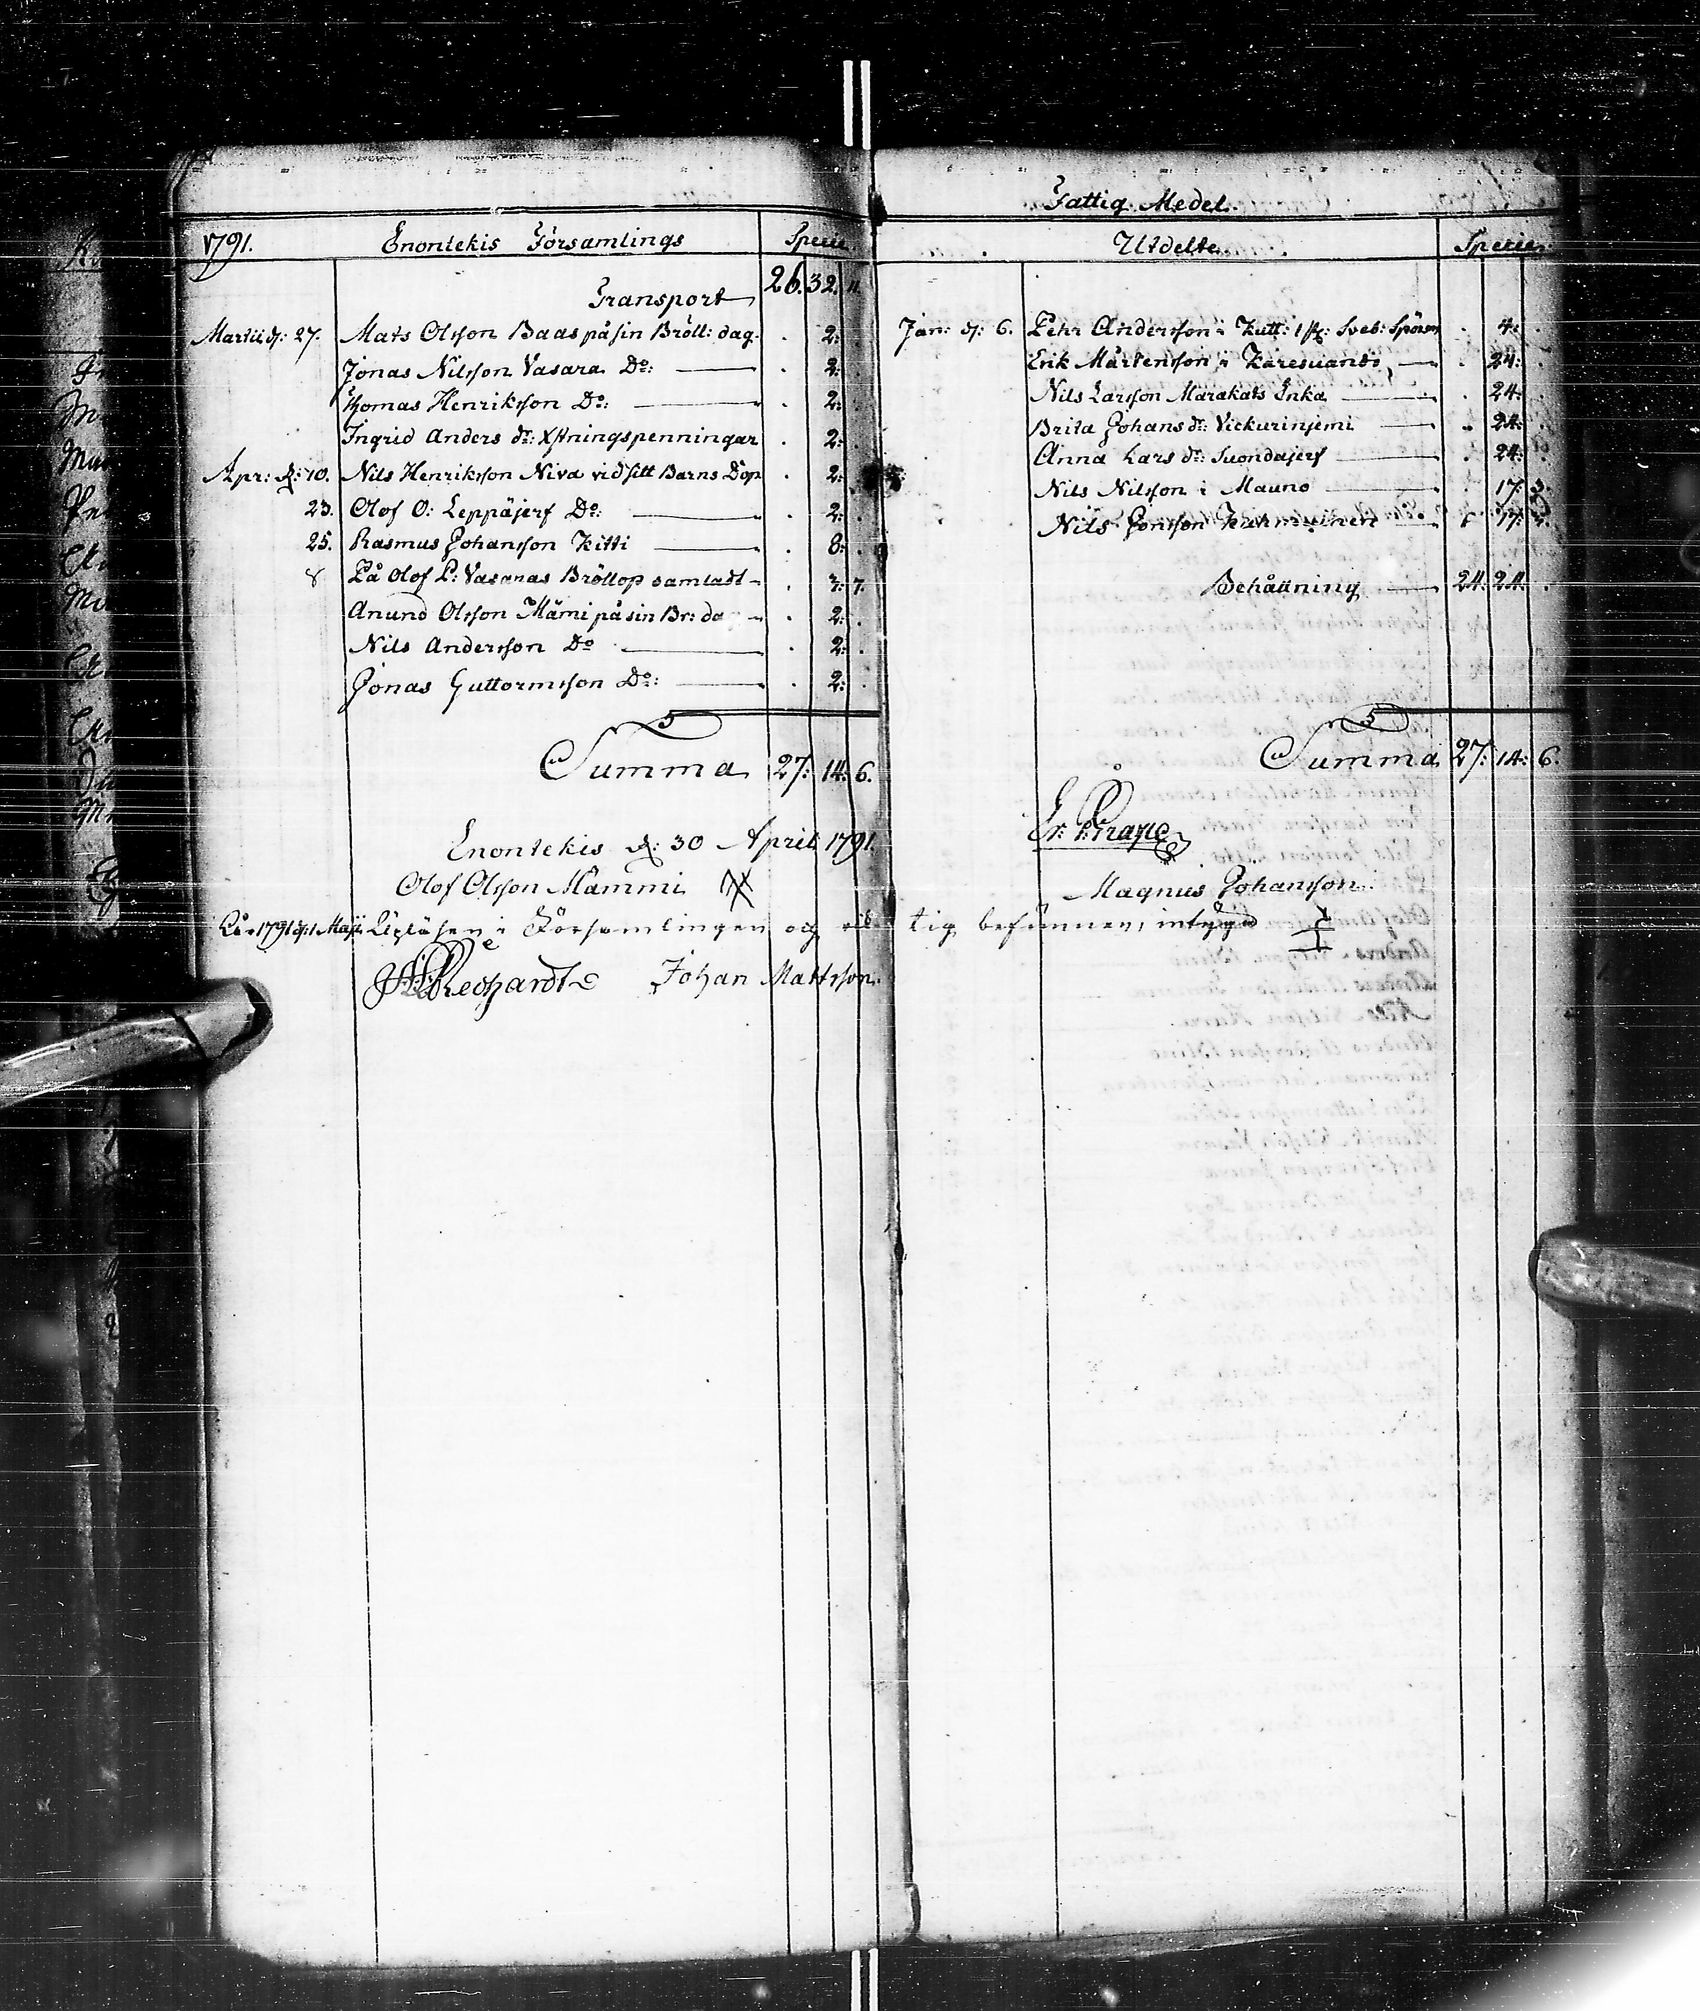 1791. Enontekis Församlings Specie.
Transport 26. 32. 11.
Martii d: 27. Mats Olsson Baas på sin Bröll: dag. . 2: .
Jonas Nilsson Vasara Do: . 2: .
Thomas Henriksson Do: . 2: .
Ingrid Anders dr: Xstningspenningar . 2: .
Apr: d: 10. Nils Henriksson Niva vid sitt Barns Dop . 2: .
23. Olof O: Leppäjerf Do: . 2: .
25. Rasmus Johansson Kitti . 8: .
På Olof P: Vasaras Bröllop samladt . 3: 7.
Anund Olsson Mämi på sin Br: dag . 2: .
Nils Andersson Do . 2: .
Jonas Guttormsson Do: . 2: .
Summa 27: 14: 6.
Enontekis d: 30 April 1791.
Olof Olsson Mämmi
Johan Mattsson.
Fattig Medel.
Utdelte. Specie.
Jan: d: 6. Pehr Andersson i Kutt: . 4: .
Erik Mårtensson i Karesuando . 24: .
Nils Larsson Marakats Inka . 24: .
Brita Johans dr: Vickurinjemi . 24: .
Anna Lars dr: Suondajerf . 24: .
Nils Nilsson i Mauno . 17: 3.
Nils Jonsson . 17:
Behållning 24. 24. .
Summa 27: 14: 6.
Magnus Johansson.
1791 d: 1 Maji Upläsen i Församlingen och riktig befunnen, intyga